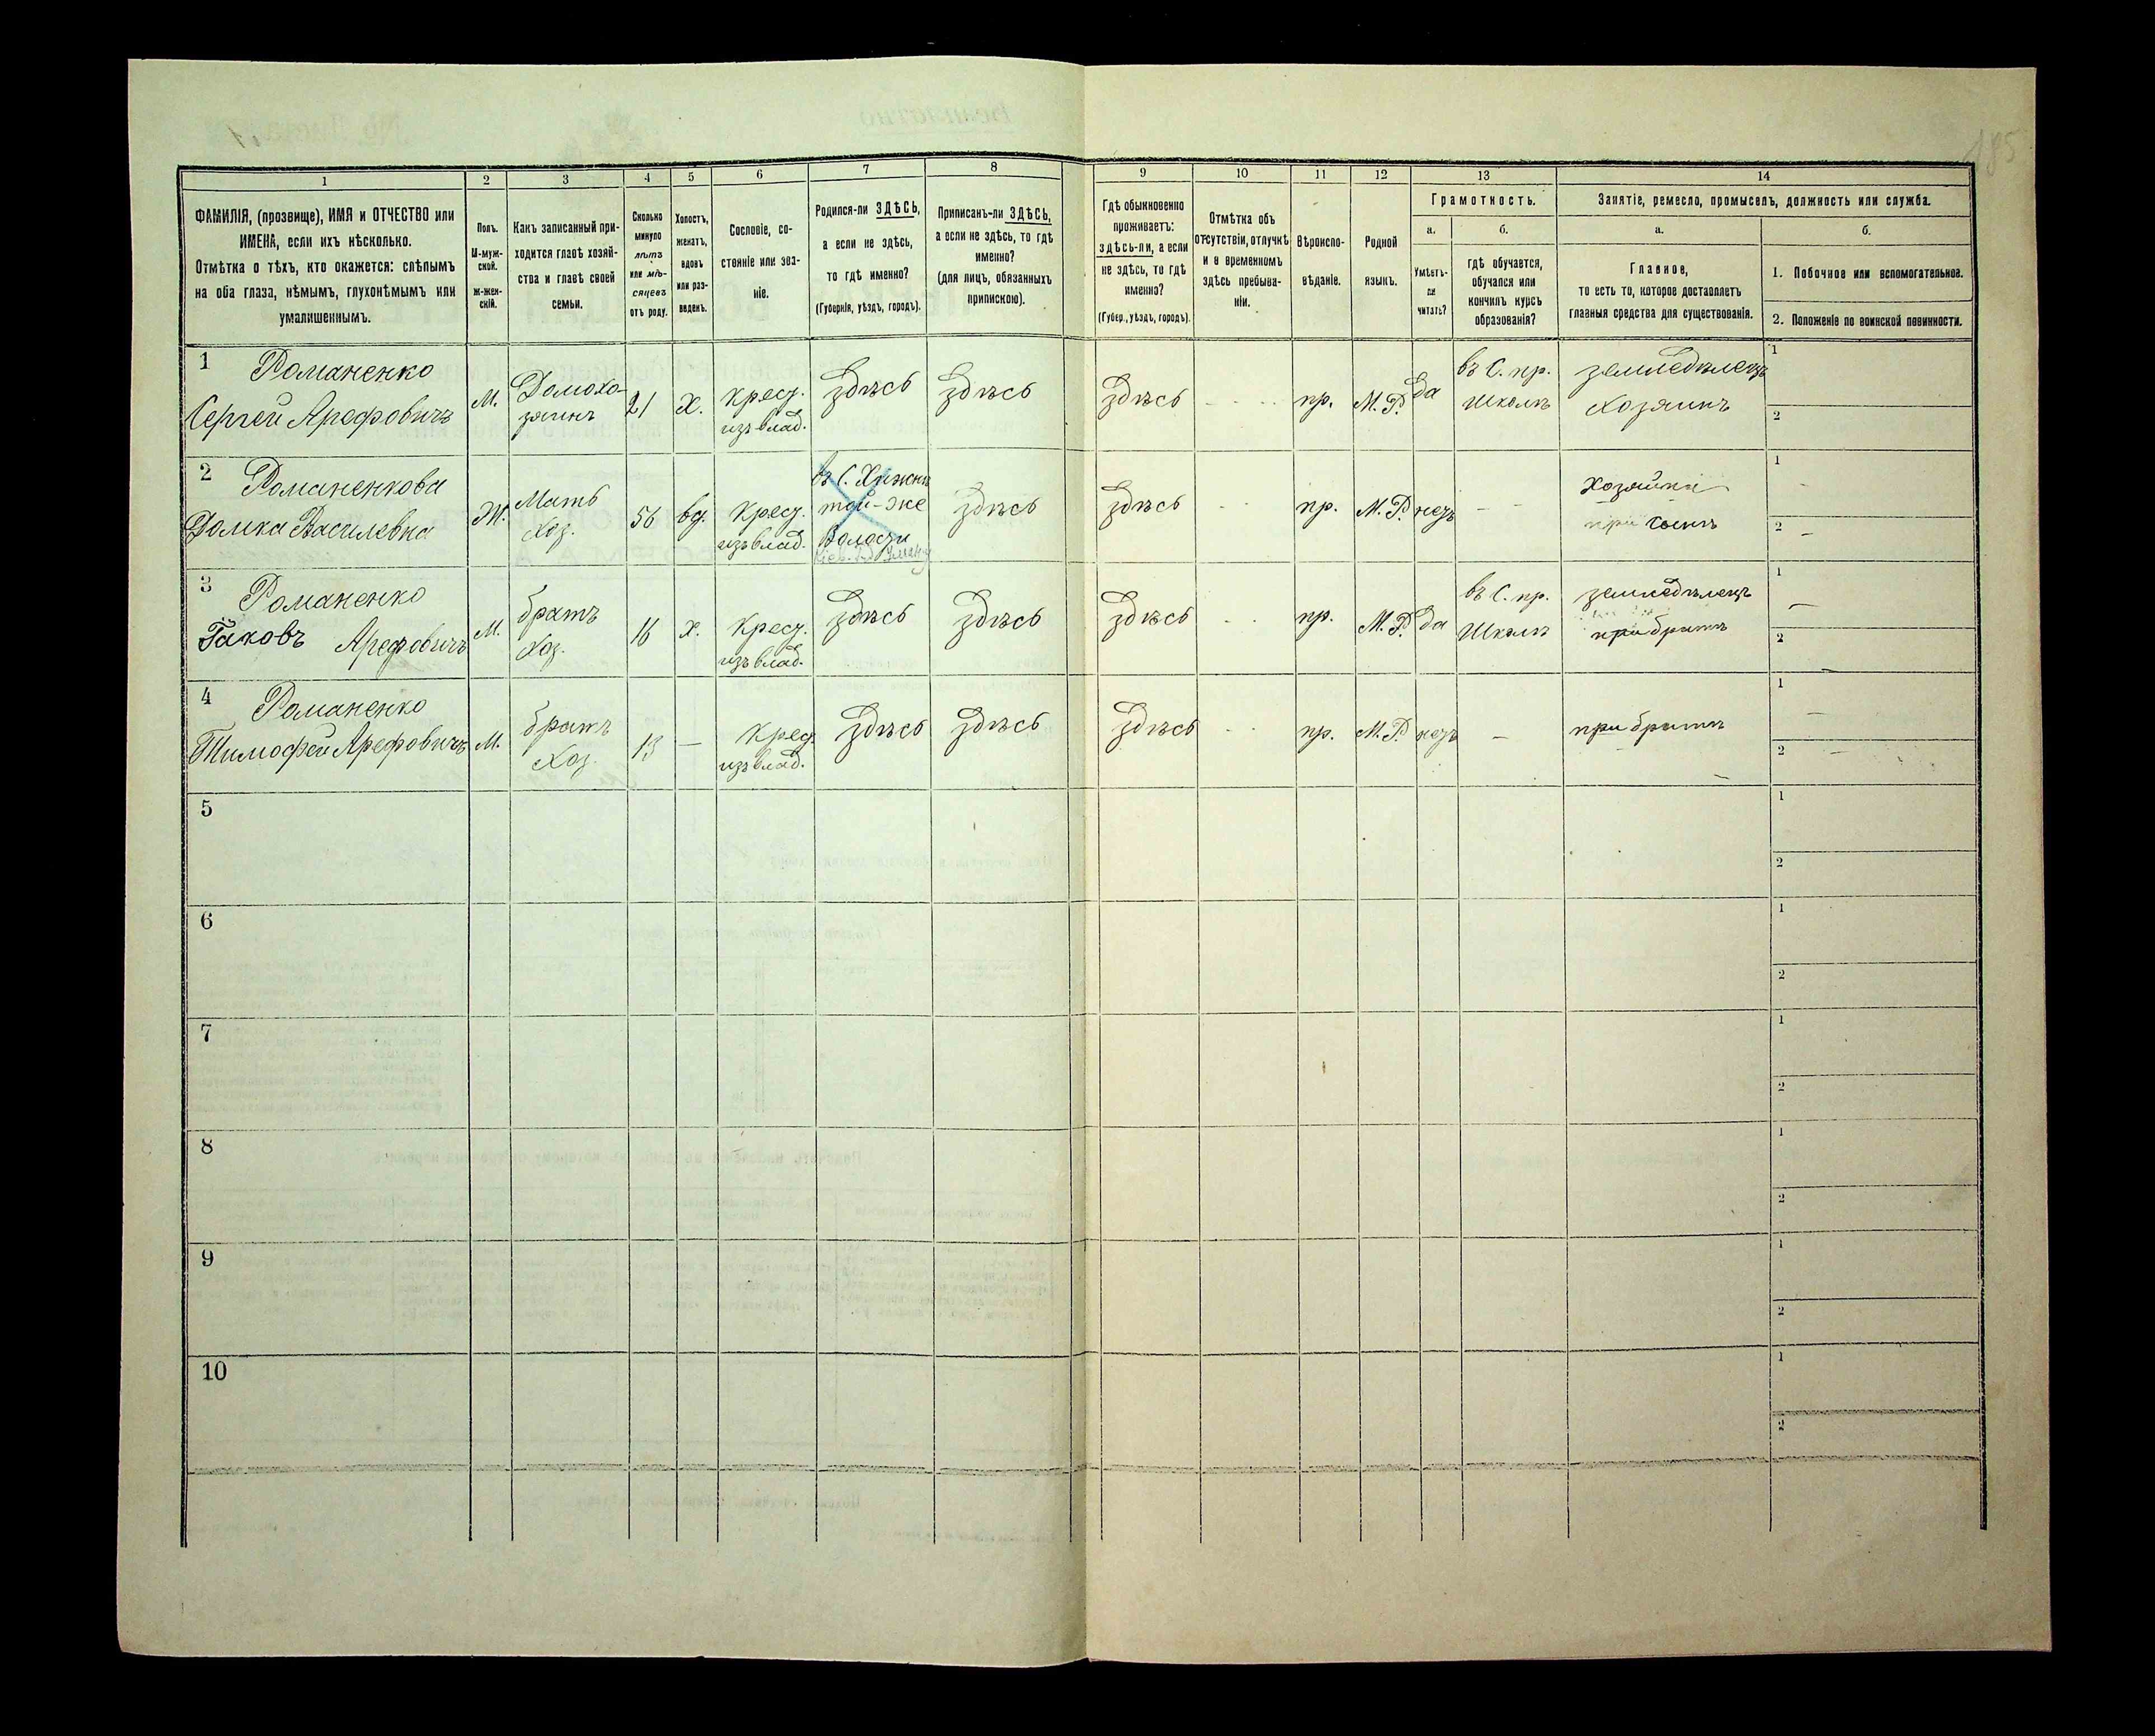 185
1 2 3 4 5 6 7 8 9 10 11 12 13 14
ФАМИЛІЯ, (прозвище), ИМЯ и ОТЧЕСТВО или
ИМЕНА, если ихъ нѣсколько.
Отмѣтка о тѣхъ, кто окажется: слѣпымъ
на оба глаза, нѣмымъ, глухонѣмымъ или
умалишеннымъ.
Полъ.
М-муж-
ской.
ж-жен-
скій.
Какъ записанный при-
ходится главѣ хозяй-
ства и главѣ своей
семьи.
Сколько
минуло
лѣтъ
или мѣ-
сяцевъ
отъ роду.
Холостъ,
женатъ,
вдовъ
или раз-
веденъ.
Сословіе, со-
стояніе или зва-
ніе.
Родился-ли ЗДѢСЬ,
а если не здѣсь,
то гдѣ именно?
(Губернія, уѣздъ, городъ).
Приписанъ-ли ЗДѢСЬ,
а если не здѣсь, то гдѣ
именно?
(для лицъ, обязанныхъ
припискою).
Гдѣ обыкновенно
проживаетъ:
здѣсь-ли, а если
не здѣсь, то гдѣ
именно?
(Губер., уѣздъ, городъ).
Отмѣтка объ
отсутствіи, отлучкѣ
и о временномъ
здѣсь пребыва-
ніи.
Вѣроиспо-
вѣданіе.
Родной
языкъ.
Грамотность.
а.
Умѣетъ-
ли
читать?
б.
гдѣ обучается,
обучался или
кончилъ курсъ
образованія?
Занятіе, ремесло, промыселъ, должность или служба.
а.
Главное,
то есть то, которое доставляетъ
главныя средства для существованія.
б.
1. Побочное или вспомогательное.
2. Положеніе по воинской повинности.
1 Романенко
Сергей Арефовичъ
М.
Домохо-
зяинъ
21
Х.
Крест.
изъ влад.
Здѣсь
Здѣсь
Здѣсь
пр.
М. Р.
Да
въ С. пр.
Школѣ
земледѣлецъ
Хозяинъ
1
2
2 Романенкова
Домка Василевна
Ж.
Мать
Хоз.
56
вд.
Крест.
изъ влад.
въ С.
той-же
Волости
Здѣсь
Здѣсь
пр.
М. Р.
нетъ
Хозяйка
при сынѣ
1
2
3 Романенко
Яковъ Арефовичъ
М.
братъ
Хоз.
16
х.
Крест.
изъ влад.
Здѣсь
Здѣсь
Здѣсь
пр.
М. Р.
да
въ С. пр.
Школѣ
земледѣлецъ
при братѣ
1
2
4 Романенко
Тимофей Арефовичъ
М.
братъ
Хоз.
13
—
Крест.
изъ влад.
Здѣсь
Здѣсь
Здѣсь
пр.
М. Р.
нетъ
—
при братѣ
1
2
5
1
2
6
1
2
7
1
2
8
1
2
9
1
2
10
1
2